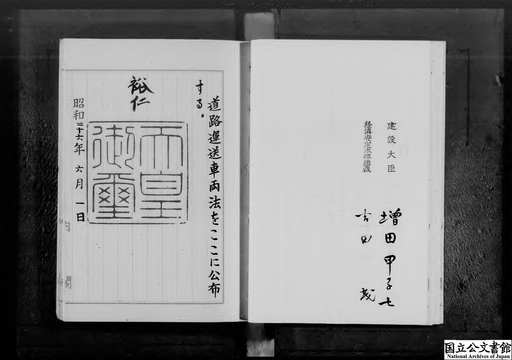 建設大臣
経済安定本部総裁
増田甲子七
吉田茂
道路運送車両法をここに公布
する。
裕仁
天皇
御璽
昭和二十六年六月一日
国立公文書館
National Archives of Japan